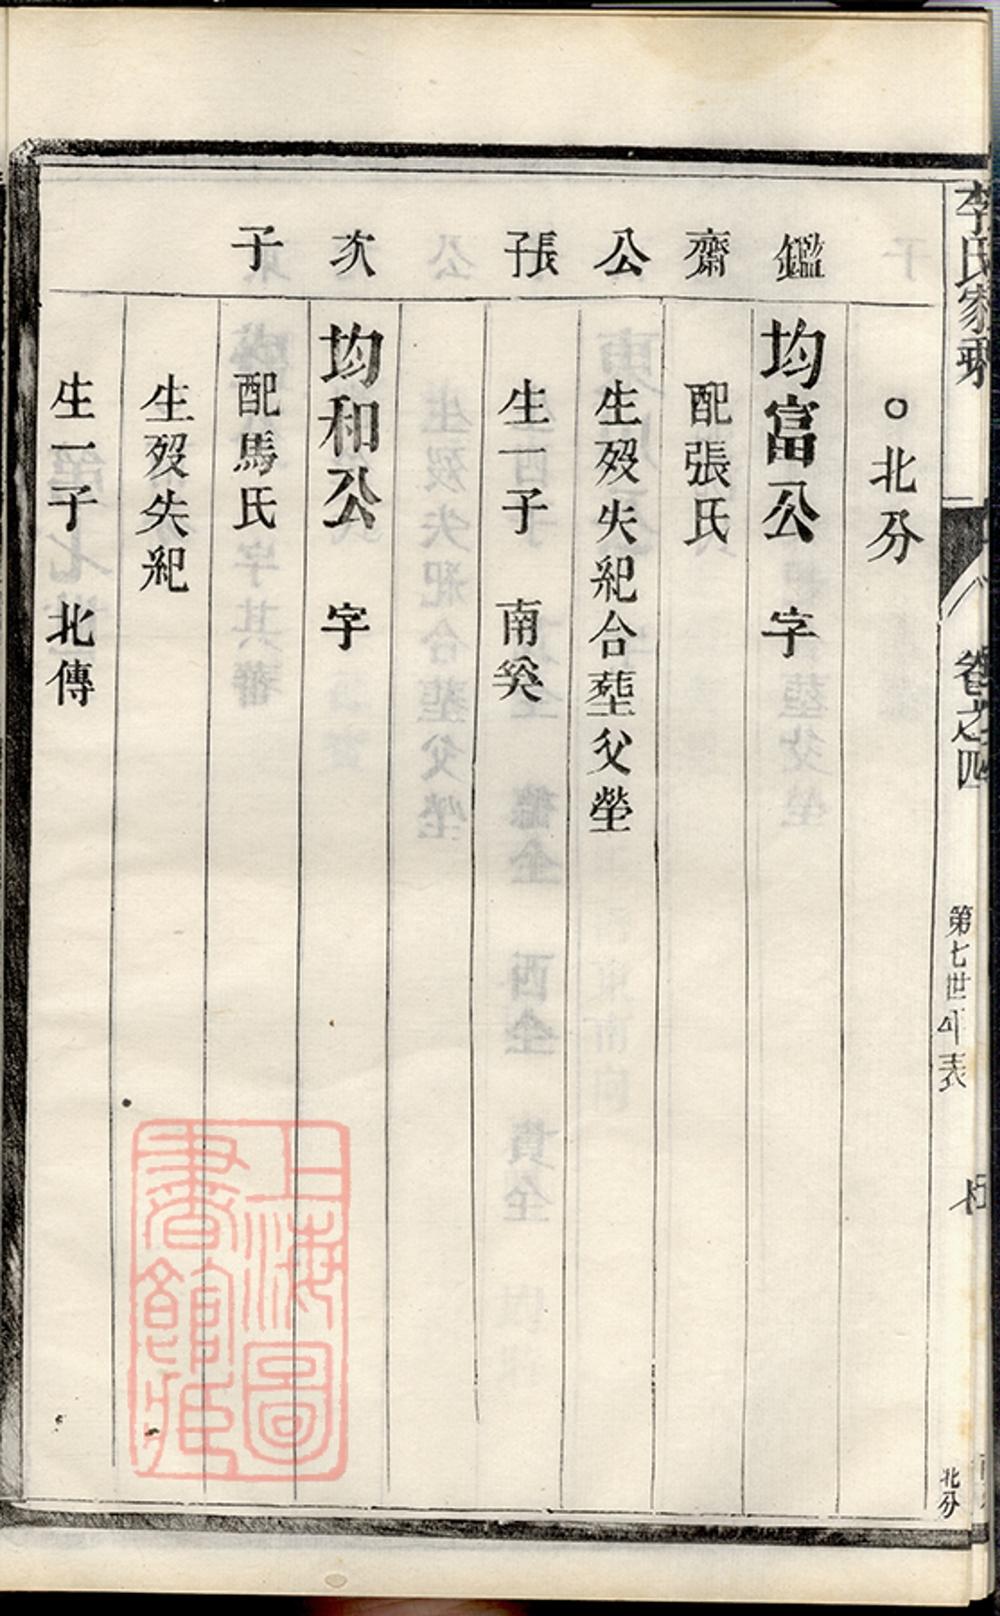 李氏家乘
卷之四
第七世年表
七
北分
○北分
鑑
均富公 字
齋
配張氏
公
生歿失紀合塟父塋
長子
生一子 南奚
次
均和公 字
子
配馬氏
生歿失紀
生一子 北傳
上海圖
書館藏